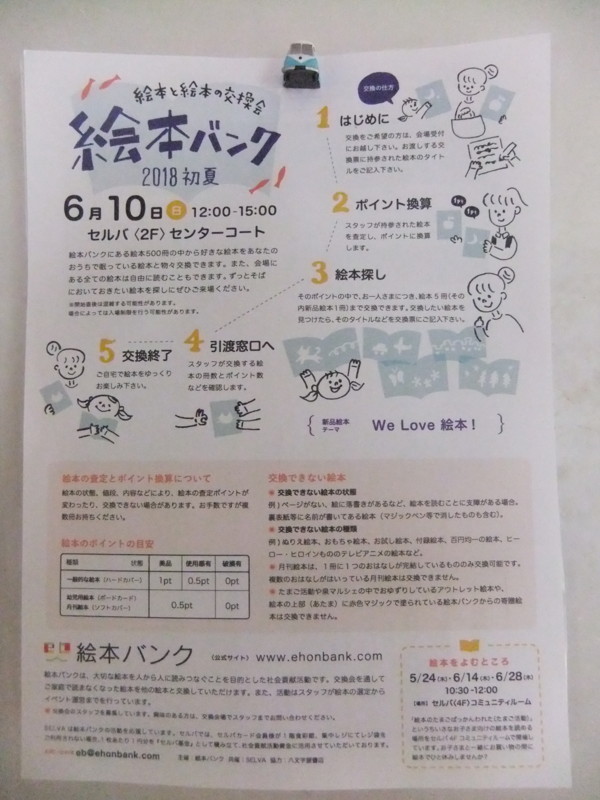 絵本と絵本の交換会
絵本バンク
2018 初夏
6月10日 日 12:00-15:00
セルバ〈2F〉センターコート
絵本バンクにある絵本500冊の中から好きな絵本をあなたの
おうちで眠っている絵本と物々交換できます。また、会場に
ある全ての絵本は自由に読むこともできます。ずっとそば
においておきたい絵本を探しにぜひご来場ください。
※開始直後は混雑する可能性があります。
場合によっては入場制限を行う可能性があります。
交換の仕方
1 はじめに
交換をご希望の方は、会場受付
にお越し下さい。お渡しする交
換票に持参された絵本のタイト
ルをご記入下さい。
2 ポイント換算
スタッフが持参された絵本
を査定し、ポイントに換算
します。
3 絵本探し
そのポイントの中で、お一人さまにつき、絵本5冊(その
内新品絵本1冊)まで交換できます。交換したい絵本を
見つけたら、そのタイトルなどを交換票にご記入下さい。
4 引渡窓口へ
スタッフが交換する絵
本の冊数とポイント数
などを確認します。
5 交換終了
ご自宅で絵本をゆっくり
お楽しみ下さい。
新品絵本
テーマ
We Love 絵本！
絵本の査定とポイント換算について
絵本の状態、価段、内容などにより、絵本の査定ポイントが
変わったり、交換できない場合があります。お手数ですが複
数冊お持ちください。
絵本のポイントの目安
種類 状態 美品 使用感有 破損有
一般的な絵本（ハードカバー） 1pt 0.5pt 0pt
幼児用絵本（ボードカード）
月刊絵本（ソフトカバー） 0.5pt 0pt
交換できない絵本
● 交換できない絵本の状態
例）ページがない、絵に落書きがあるなど、絵本を読むことに支障がある場合。
裏表紙等に名前が書いてある絵本（マジックペン等で消したものも含む）。
● 交換できない絵本の種類
例）ぬりえ絵本、おもちゃ絵本、お試し絵本、付録絵本、百円均一の絵本、ヒー
ロー・ヒロインもののテレビアニメの絵本など。
● 月刊絵本は、1冊に1つのおはなしが完結しているもののみ交換可能です。
複数のおはなしがはいっている月刊絵本は交換できません。
● たまご活動や泉マルシェの中でおゆずりしているアウトレット絵本や、
絵本の上部（あたま）に赤色マジックで塗られている絵本バンクからの寄贈絵
本は交換できません。
絵本バンク
〈公式サイト〉 www.ehonbank.com
絵本バンクは、大切な絵本を人から人に読みつなぐことを目的とした社会貢献活動です。交換会を通して
ご家庭で読まなくなった絵本を他の絵本と交換していただけます。また、活動はスタッフが絵本の選定から
イベント運営までを行っています。
● 交換会のスタッフを募集しています。興味のある方は、交換会場でスタッフまでお問い合わせください。
SELVAは絵本バンクの活動を応援しています。
eb@ehonbank.com 主催：絵本バンク 共催：SELVA 協力：八文字屋書店
絵本をよむところ
5/24(木)・6/14(木)・6/28(木)
10:30-12:00
〈場所〉セルバ〈4F〉コミュニティルーム
「絵本のたまごぱっかんわれた(たまご活動)」
というちいさなお子さま向けの絵本を読める
場所をセルバ4Fコミュニティルームで開催し
ています。お子さまと一緒にお買い物の間に
絵本でひとやすみしませんか？